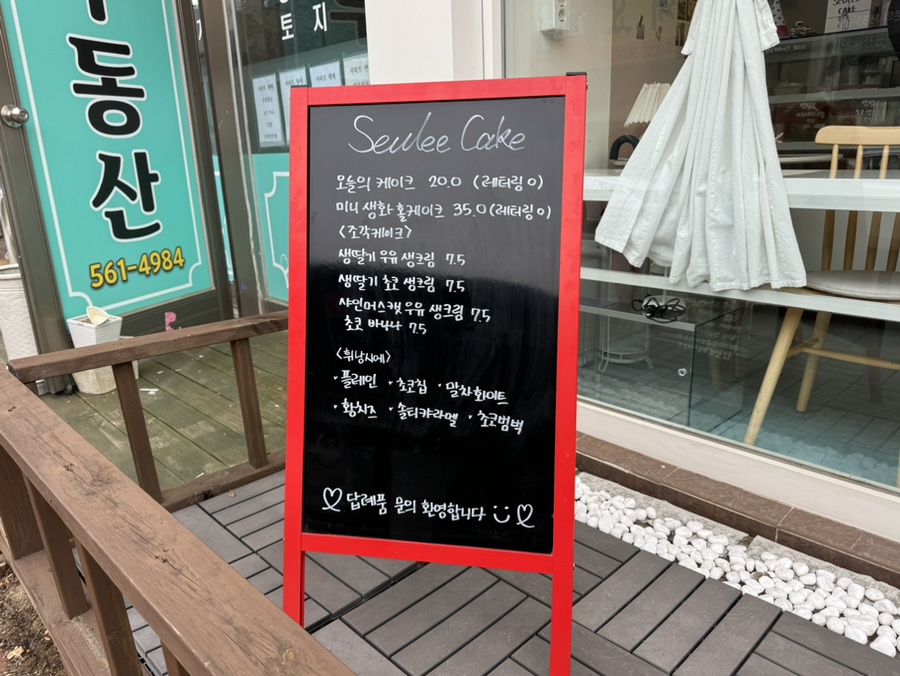 동산
561-4984
토지
SEULEE
CAKE
Seulee Cake
오늘의 케이크 20.0 (레터링 O)
미니 생화 홀케이크 35.0 (레터링 O)
<조각케이크>
생딸기 우유 생크림 7.5
생딸기 초코 생크림 7.5
샤인머스캣 우유 생크림 7.5
초코 바나나 7.5
<휘낭시에>
· 플레인 · 초코칩 · 말차화이트
· 황치즈 · 솔티캬라멜 · 초코범벅
♡ 답례품 문의 환영합니다 ♡